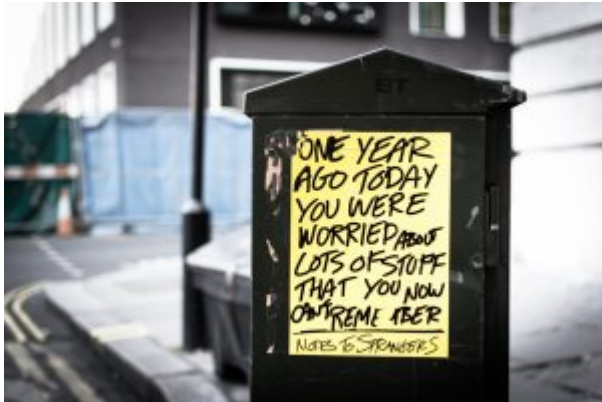 ET
ONE YEAR
AGO TODAY
YOU WERE
WORRIED ABOUT
LOTS OF STUFF
THAT YOU NOW
CAN'T REME BER
NOTES TO STRANGERS